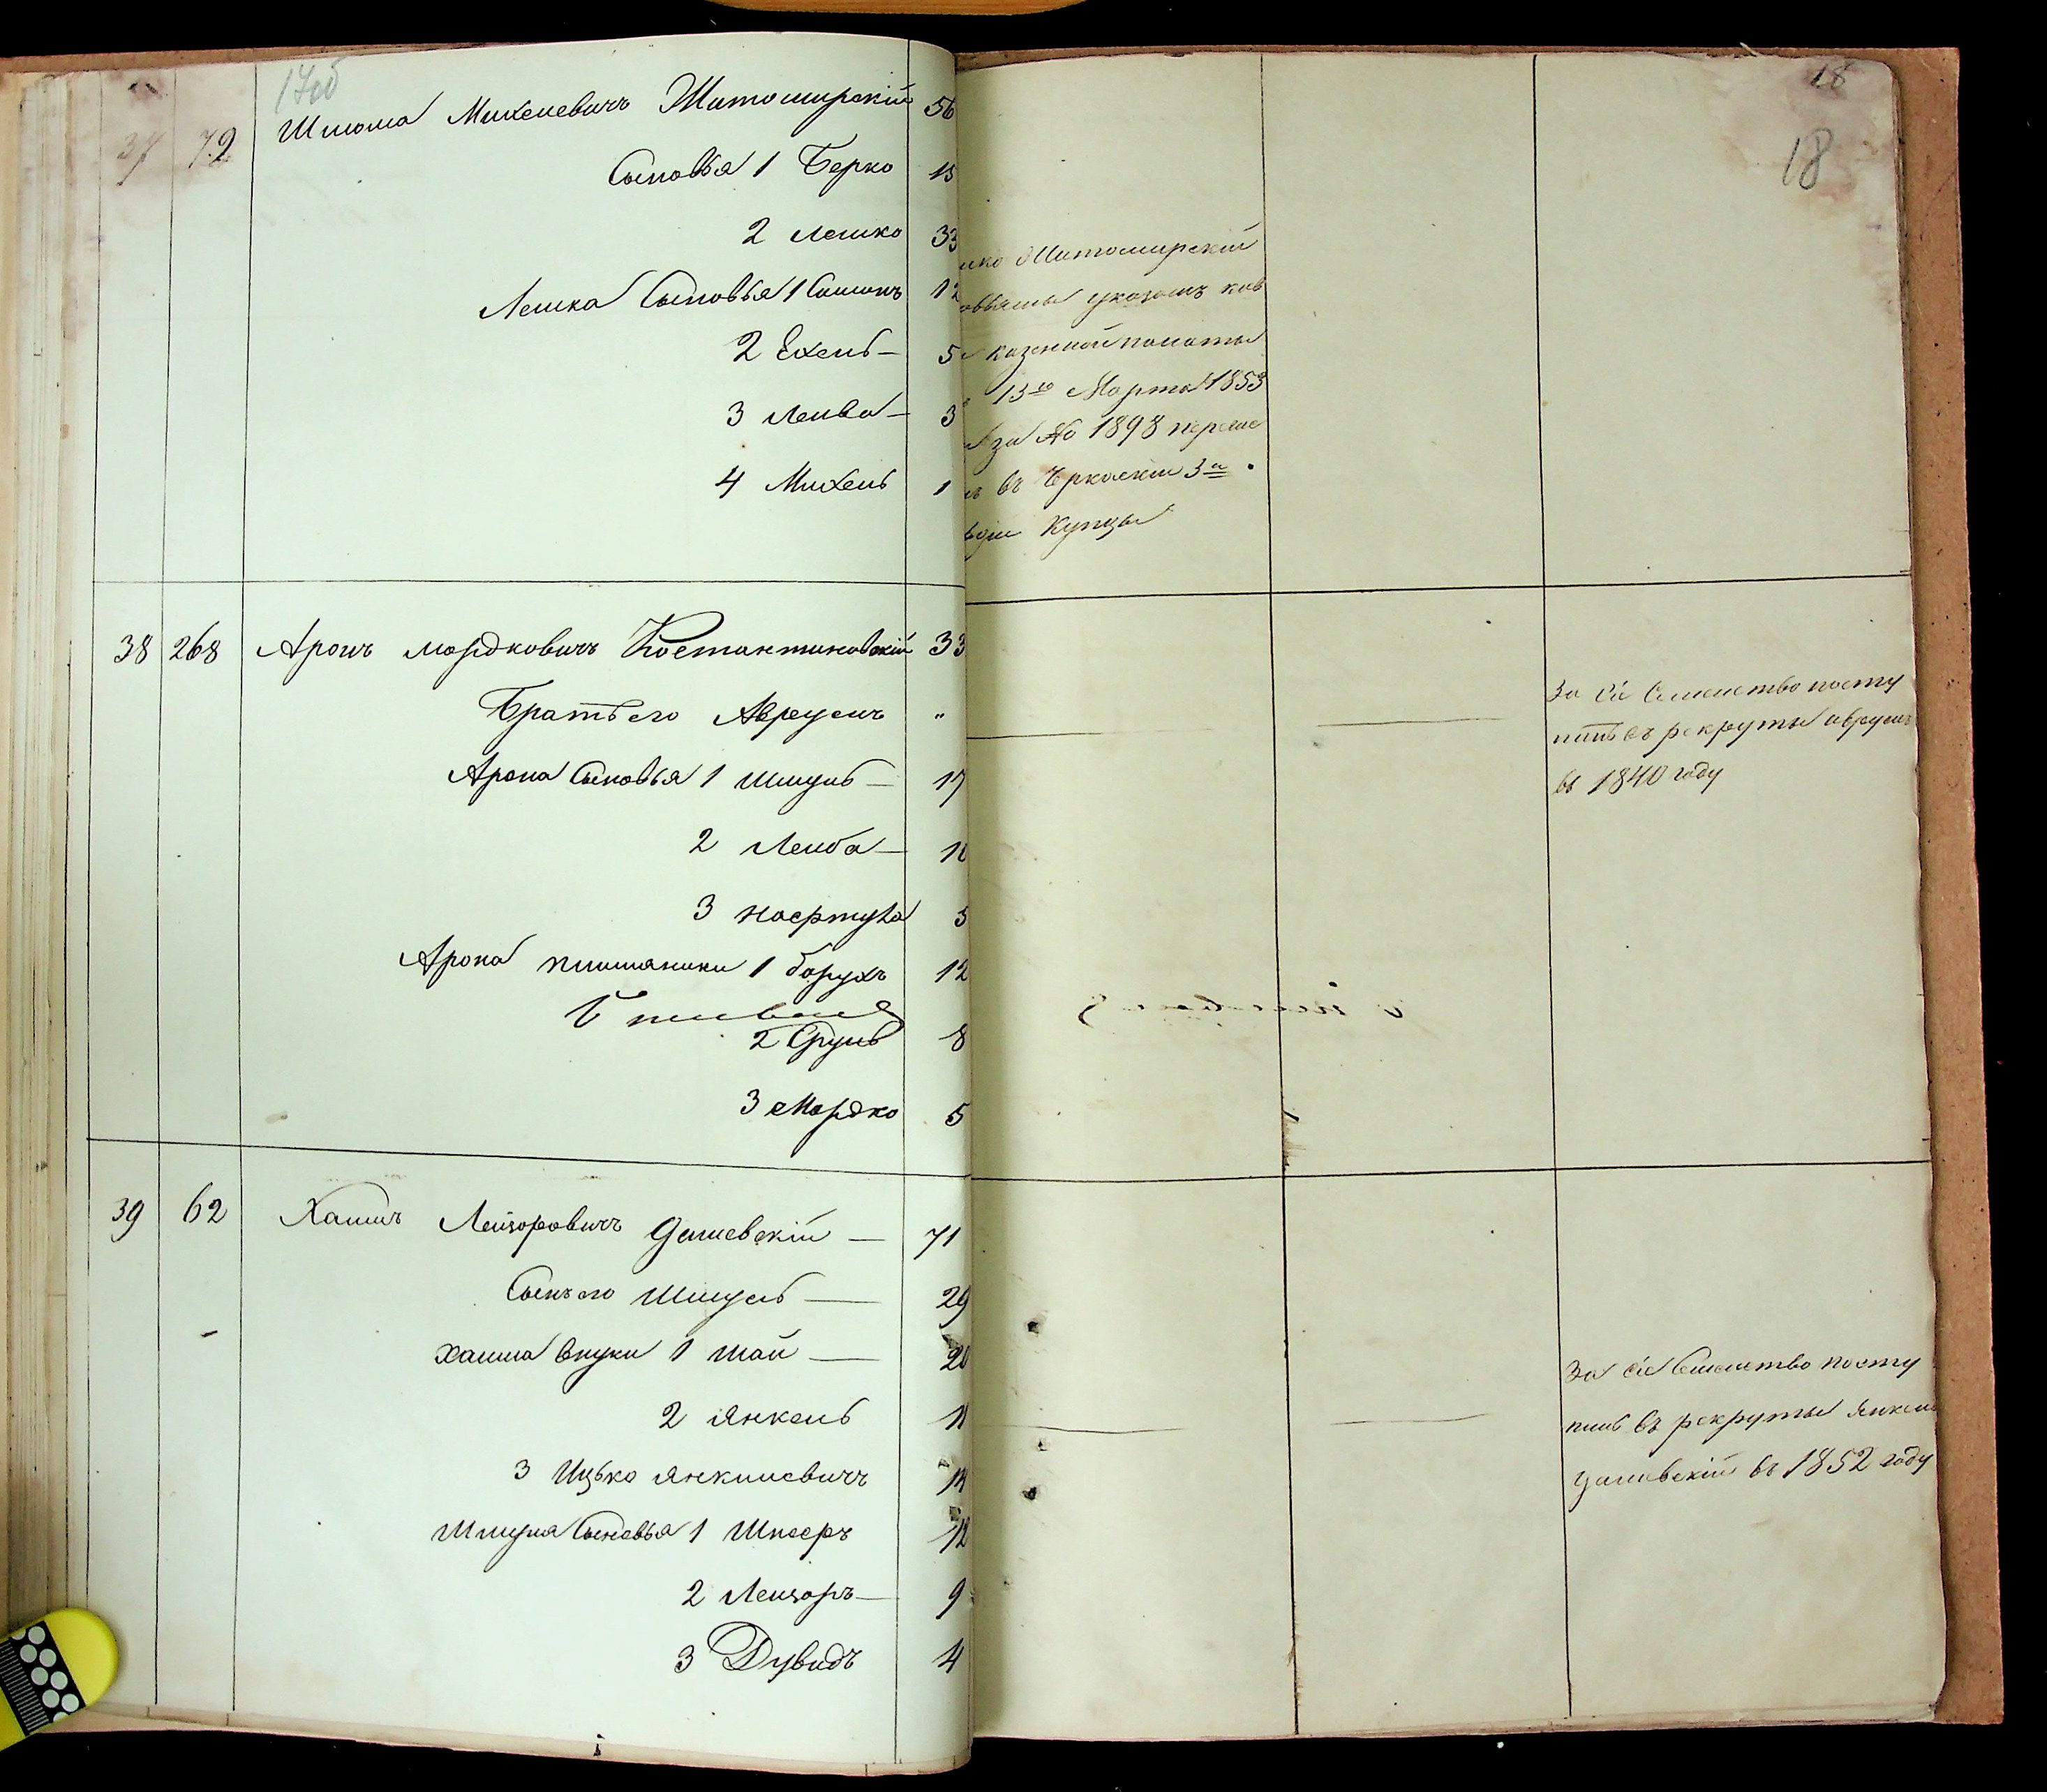 17об
37 72 Шлиома Михелевичъ Житомирскій 56
Сыновья 1 Берко 13
2 Лешко 33
Лешка Сыновья 1 Симонъ 12
2 Ехель — 5
3 Лейба — 3
4 Михель 1
38 268 Аронъ Мордковичъ Костантиновскій 33
Братъ его Аврумъ "
Арона Сыновья 1 Шмуль — 17
2 Лейба — 10
3 Нафтула 5
Арона племяники 1 Борухъ 12
2 Сруль 8
3 Мордко 5
39 62 Хаимъ Лейзоровичъ Дашевскій — 71
Сынъ его Шмуль — 29
Хаима внуки 1 Шай — 20
2 Янкель 11
3 Ицько Янкилевичъ 14
Шмуля Сыновья 1 Шнееръ 12
2 Лейзоръ — 9
3 Дувидъ 4
18
18
Житомирскій
указомъ кіев
казенной палаты
13го Марта 1853
за № 1898 переч
въ Черкаскіи 3й
Купцы
За сіе Семейство посту
пилъ въ рекруты Аврумъ
въ 1840 году
За сіе Семейство посту
пилъ въ рекруты Янкель
Дашевскій въ 1852 году